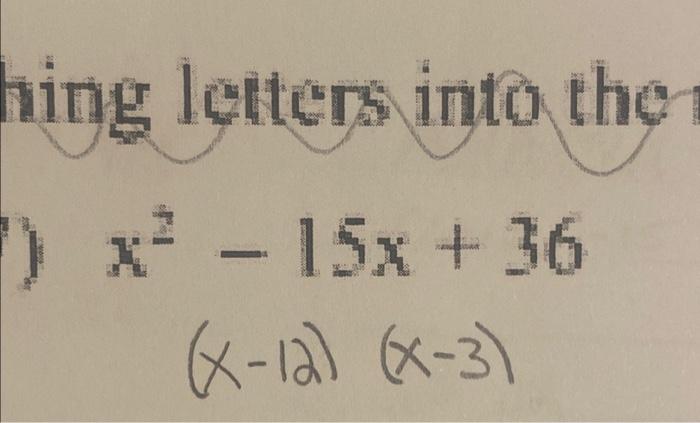 hing letters into the
") x² - 15x + 36
(x-12) (x-3)